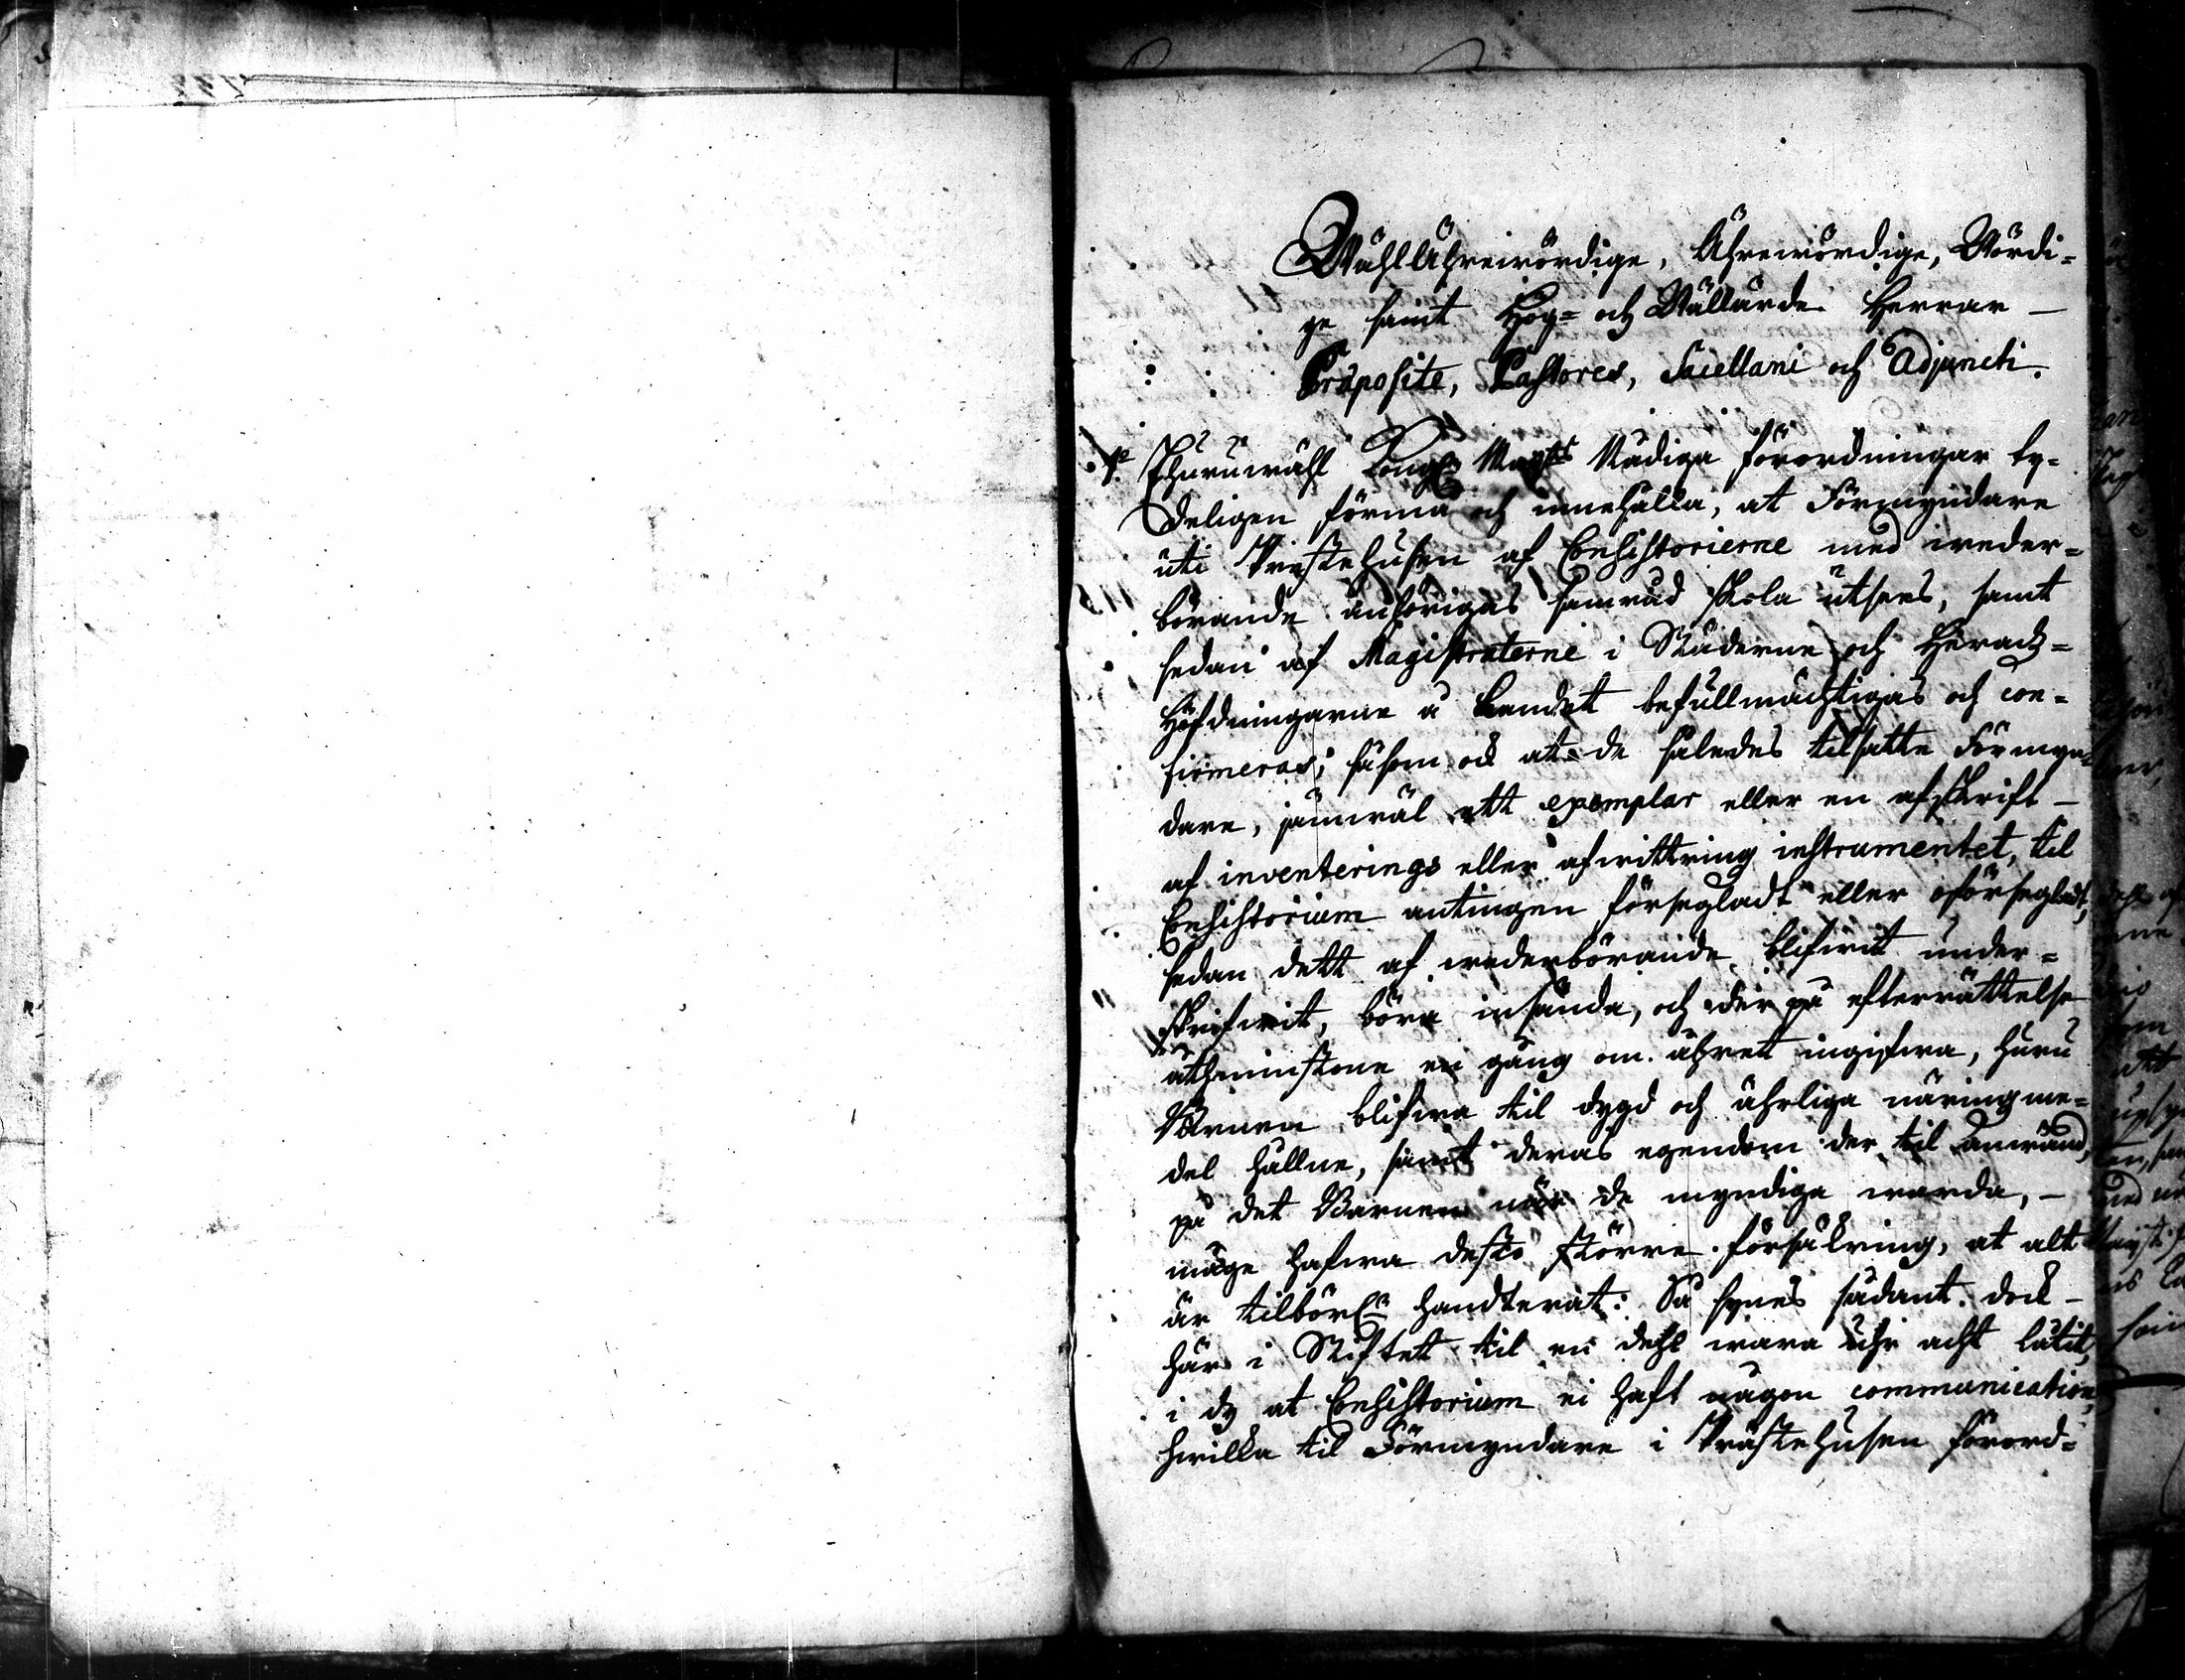 WählÄhrewördige, Ährewördige, Wördi=
ge samt Hög= och Wällärde Herrar
Præposite, Pastores, Sacellani och Adjuncti.
1:o Ehuruwähl Kongl. Maij:ts Nådiga Förordningar ty=
deligen förmå och innehålla, at Förmyndare
uti Prestehusen af Consistorierne med weder=
börande anhörigas samråd skola utsees, samt
sedan af Magistraterne i Städerne och Häradz=
Höfdingarne å Landet befullmächtigas och con=
firmeras; såsom ock at de således tilsatte Förmyn=
dare, jämwäl ett exemplar eller en afskrift
af inventerings eller afwittring instrumentet, til
Consistorium antingen försegladt eller oförseglat,
sedan dett af wederbörande blifwit under=
skrifwit, böra insända, och der på efterrättelse
åthminstone en gång om åhret ingifwa, huru
Barnen blifwa til dygd och ährliga näringme=
del hållne, samt deras egendom der til anwänd,
på det Barnen når de myndiga warda,
måge hafwa desto större försäkring, at alt
är tilbörl. handterat: Så synes sådant dock
här i Stiftet til en dehl wara uhr acht låtit,
i dy at Consistorium ei haft någon communication,
hwilka til Förmyndare i Prästehusen förord=